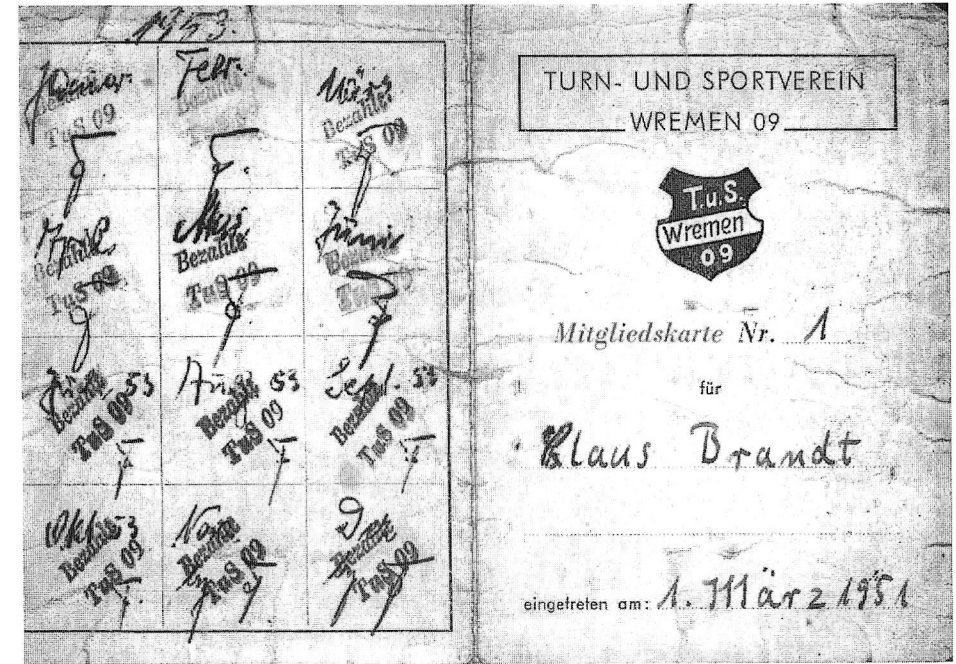 1953.
Januar
Bezahlt
TuS 09
Febr.
Bezahlt
März
Bezahlt
TuS 09
April
Bezahlt
TuS 09
Mai
Bezahlt
TuS 09
Juni
Bezahlt
TuS 09
53
Bezahlt
TuS 09
Aug 53
Bezahlt
TuS 09
Sept. 53
Bezahlt
TuS 09
Okt 53
Bezahlt
TuS 09
Nov
Bezahlt
TuS 09
D
Bezahlt
TuS 09
TURN- UND SPORTVEREIN
WREMEN 09
T.u.S.
Wremen
09
Mitgliedskarte Nr. 1
für
Klaus Brandt
eingetreten am: 1. März 1951